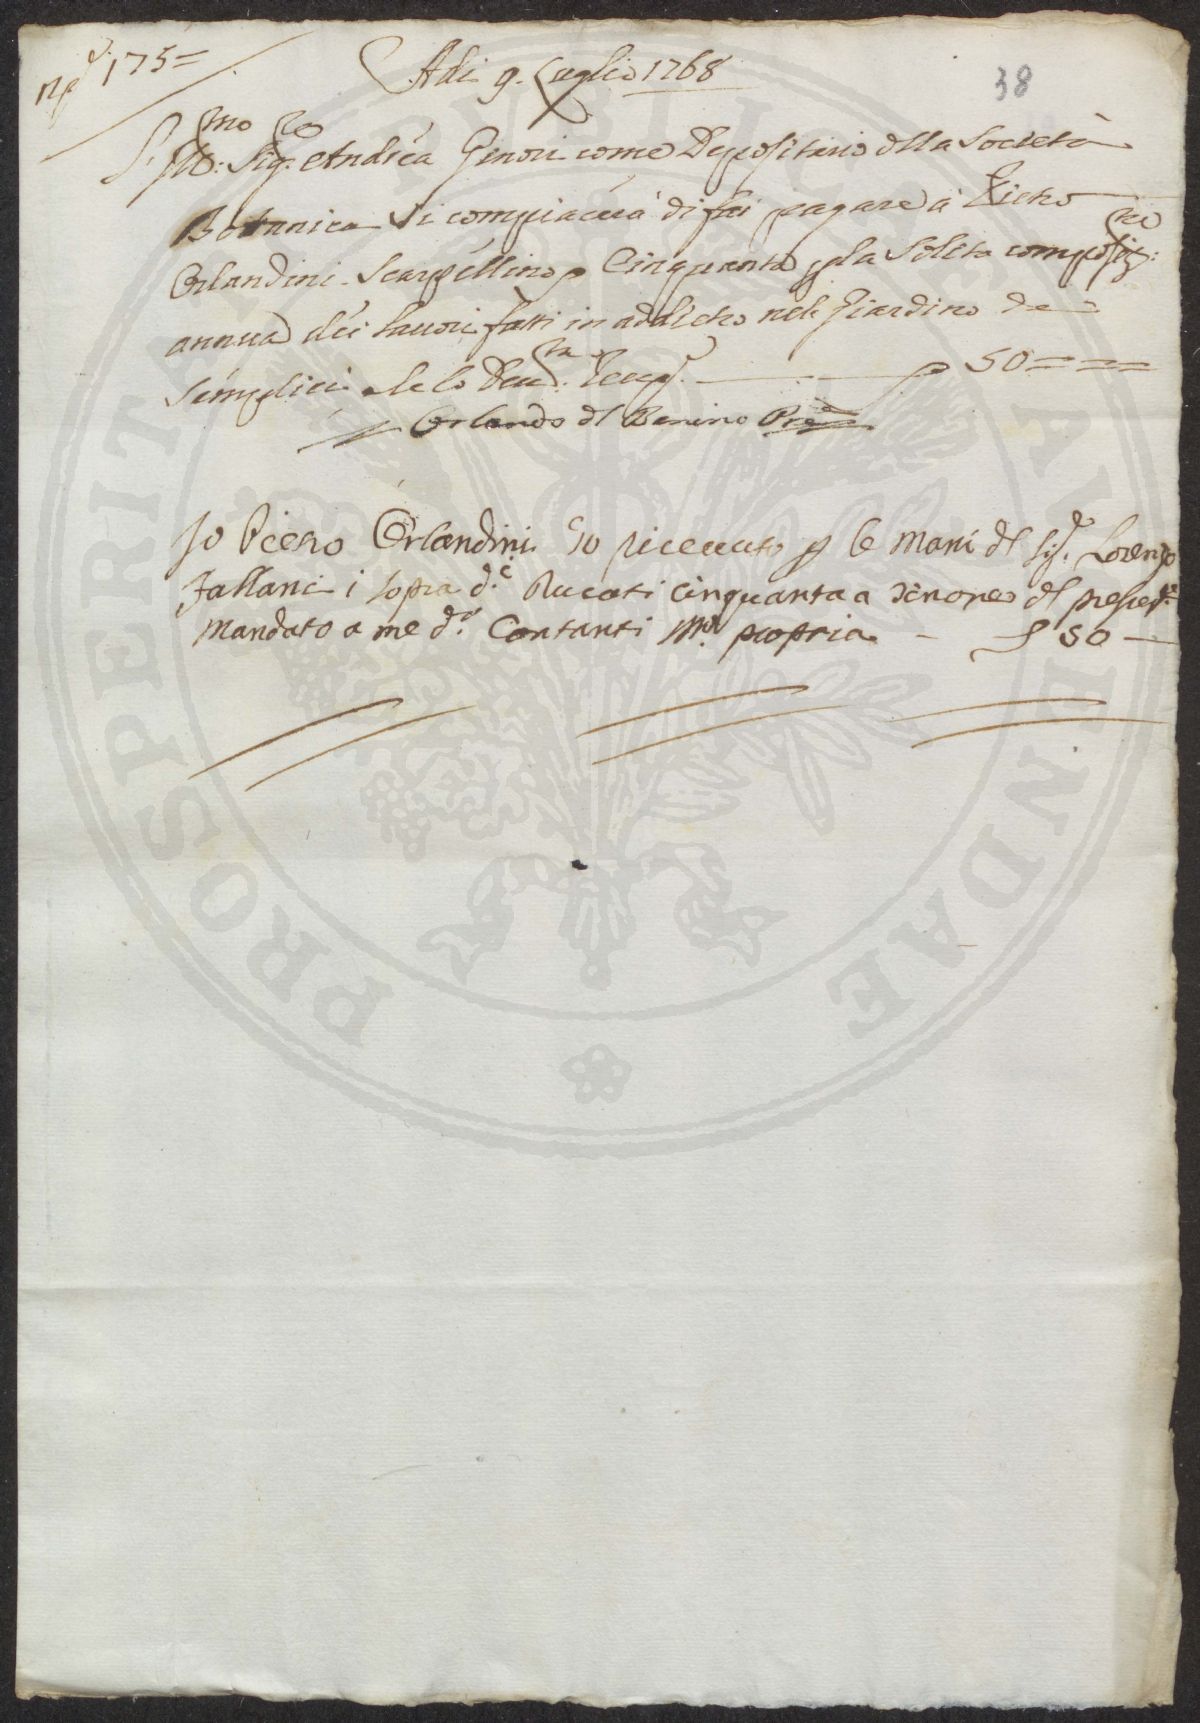 N.º 175=
Adi 9. Luglio 1768
38
Ill:mo Sig:re Andrea Ginori come Depositario dlla Società
Botanica si compiacerà di far pagare à Pietro
Orlandini Scarpellino Cinquanta p la Solita composiz:ne
annua dei lavori fatti in addietro nel Giardino de
Semplici 50==
Orlando dl Benino Pre
Io Pietro Orlandini ò riceuuto p le mani dl Sig.r Lorenzo
Fallani i sopra d.i Ducati Cinquanta a tenore dl present.e
Mandato a me d.o Contanti M.o propria - 50 -
PUBLICA
PROSPERITATI
AUGENDAE